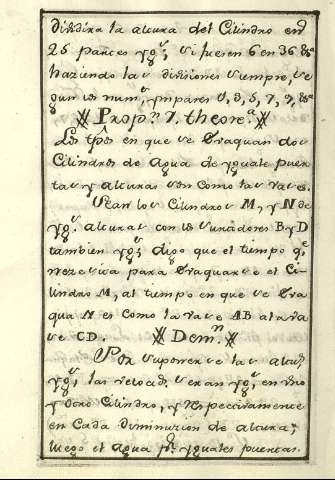 dividira la altura del Cilindro en
25 partes yg.s, si fuesen 6 en 36 &.a
haziendo las divisiones siempre, se
gun los num.s ynpares 1, 3, 5, 7, 9, &.a
Prop.n 7. theore.a
Los tpôs en que se evaquan dos
Cilindros de agua de yguales puen
tas y alturas son como las vases.
Sean los Cilindros M, y N de
yg.s alturas con los surtidores B y D
tambien yg.s digo que el tiempo q.e
nezesita para evaquarse el Ci-
lindro M, al tiempo en que se eva
qua N es como la vase AB ala va
se CD. Dem.n
Por suponerse las altu.s
yg.s las velocid.s seran yg.s en uno
y otro Cilindro, y respectivamente
en cada diminuzion de altura,
luego el agua p.r yguales puentas.